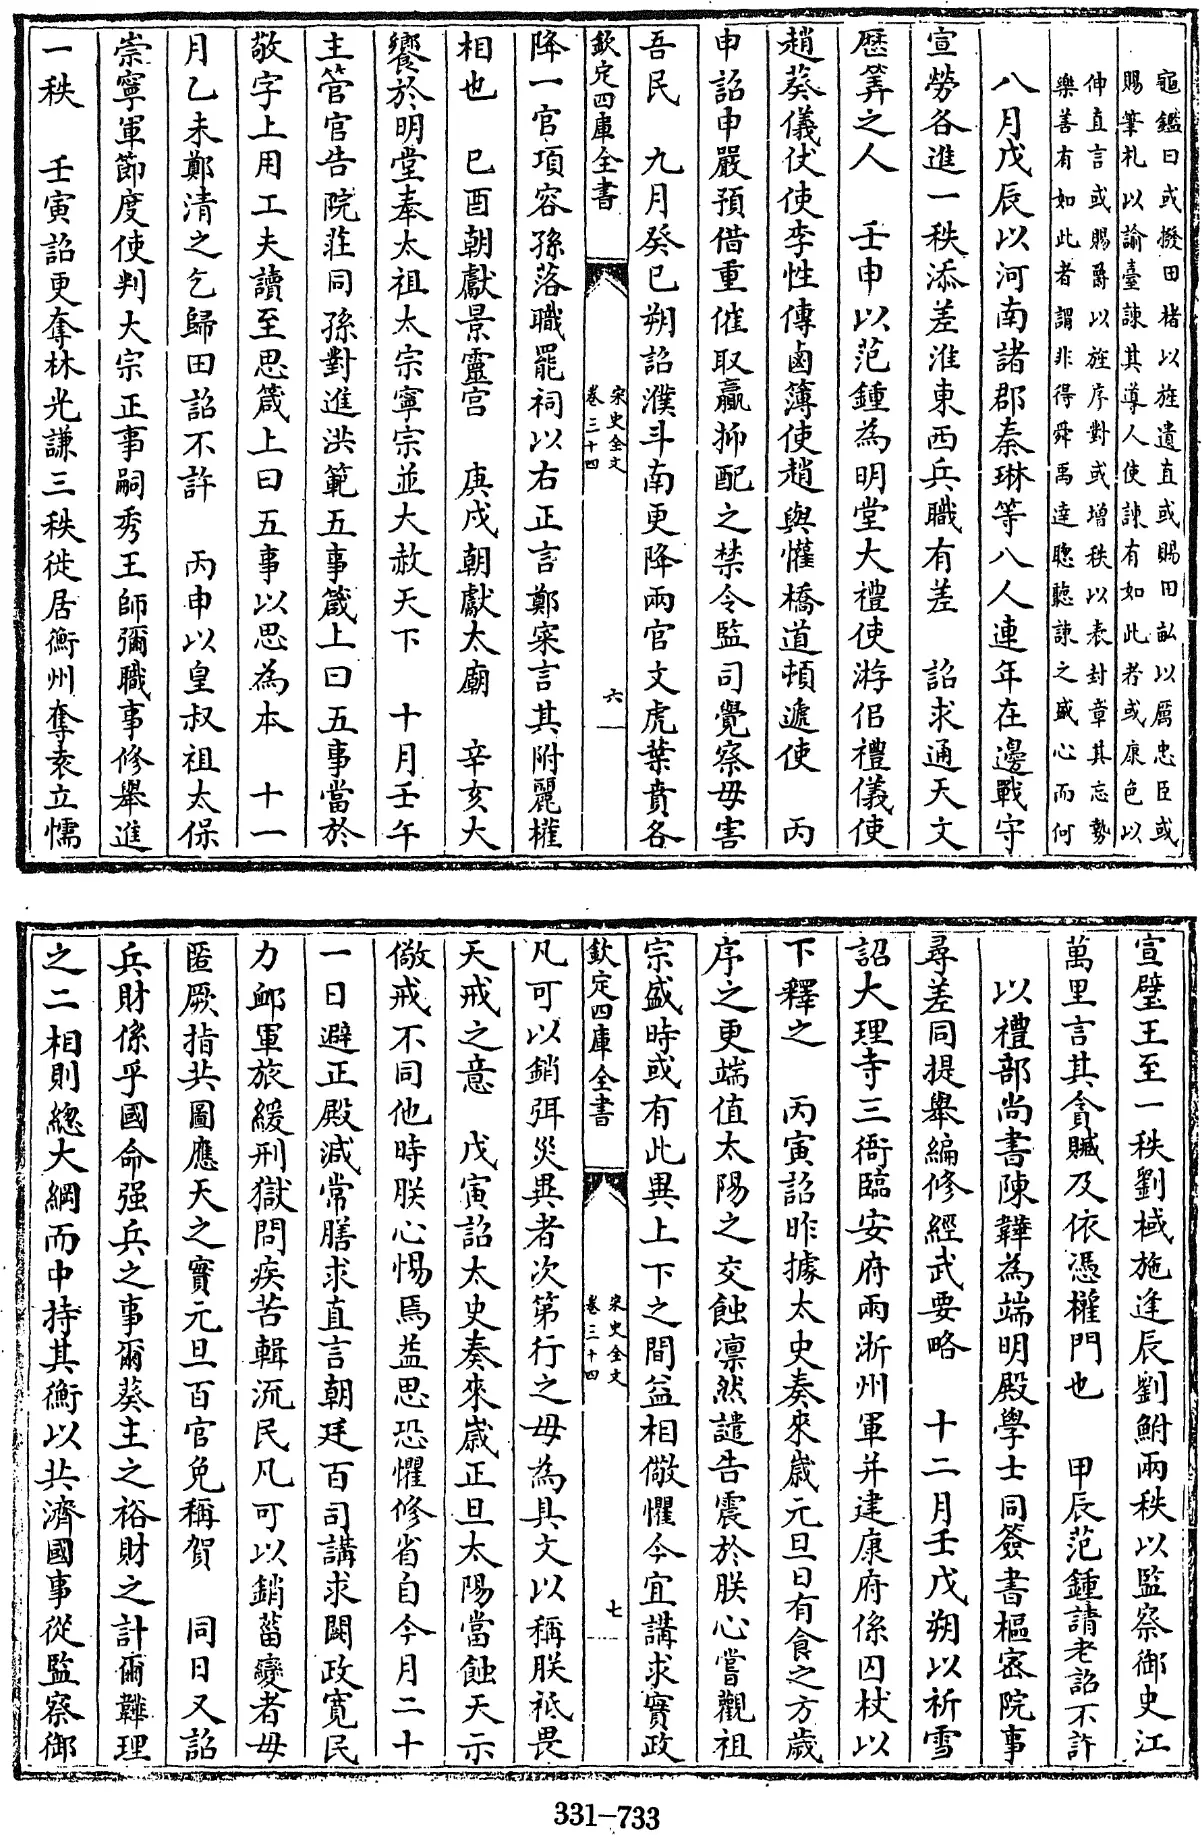 龜鑑曰或撥田楮以旌遺直或賜田畝以厲忠臣或
賜筆札以諭臺諫其導人使諫有如此者或康色以
伸直言或賜爵以旌序對或增秩以表封章其忘勢
樂善有如此者謂非得舜禹達聰聽諫之盛心而何
八月戊辰以河南諸郡秦琳等八人連年在邊戰守
宣勞各進一秩添差淮東西兵職有差　詔求通天文
歷筭之人　壬申以范鍾為明堂大禮使游侣禮儀使
趙葵儀仗使李性傳鹵簿使趙與懽橋道頓遞使　丙
申詔申嚴預借重催取贏抑配之禁令監司覺察毋害
吾民　九月癸巳朔詔濮斗南更降兩官文虎葉賁各
欽定四庫全書　宋史全文卷三十四　六
降一官項容孫落職罷祠以右正言鄭寀言其附麗權
相也　己酉朝獻景靈宫　庚戌朝獻太廟　辛亥大
饗於明堂奉太祖太宗寧宗並大赦天下　十月壬午
主管官告院莊同孫對進洪範五事箴上曰五事當於
敬字上用工夫讀至思箴上曰五事以思為本　十一
月乙未鄭清之乞歸田詔不許　丙申以皇叔祖太保
崇寧軍節度使判大宗正事嗣秀王師彌職事修舉進
一秩　壬寅詔更奪林光謙三秩徙居衡州奪袁立懦
宣璧王至一秩劉棫施逢辰劉鮒兩秩以監察御史江
萬里言其貪贓及依憑權門也　甲辰范鍾請老詔不許
以禮部尚書陳韡為端明殿學士同簽書樞密院事
尋差同提舉編修經武要略　十二月壬戌朔以祈雪
詔大理寺三衙臨安府兩浙州軍并建康府係囚杖以
下釋之　丙寅詔昨據太史奏來歲元旦日有食之方歲
序之更端值太陽之交蝕凛然譴告震於朕心嘗觀祖
宗盛時或有此異上下之間益相儆懼今宜講求實政
欽定四庫全書　宋史全文卷三十四　七
凡可以銷弭災異者次第行之毋為具文以稱朕祗畏
天戒之意　戊寅詔太史奏來歲正旦太陽當蝕天示
儆戒不同他時朕心惕焉益思恐懼修省自今月二十
一日避正殿減常膳求直言朝廷百司講求闕政寛民
力卹軍旅緩刑獄問疾苦輯流民凡可以銷菑變者毋
匿厥指共圖應天之實元旦百官免稱賀　同日又詔
兵財係乎國命强兵之事爾葵主之裕財之計爾韡理
之二相則緫大綱而中持其衡以共濟國事從監察御
331-733